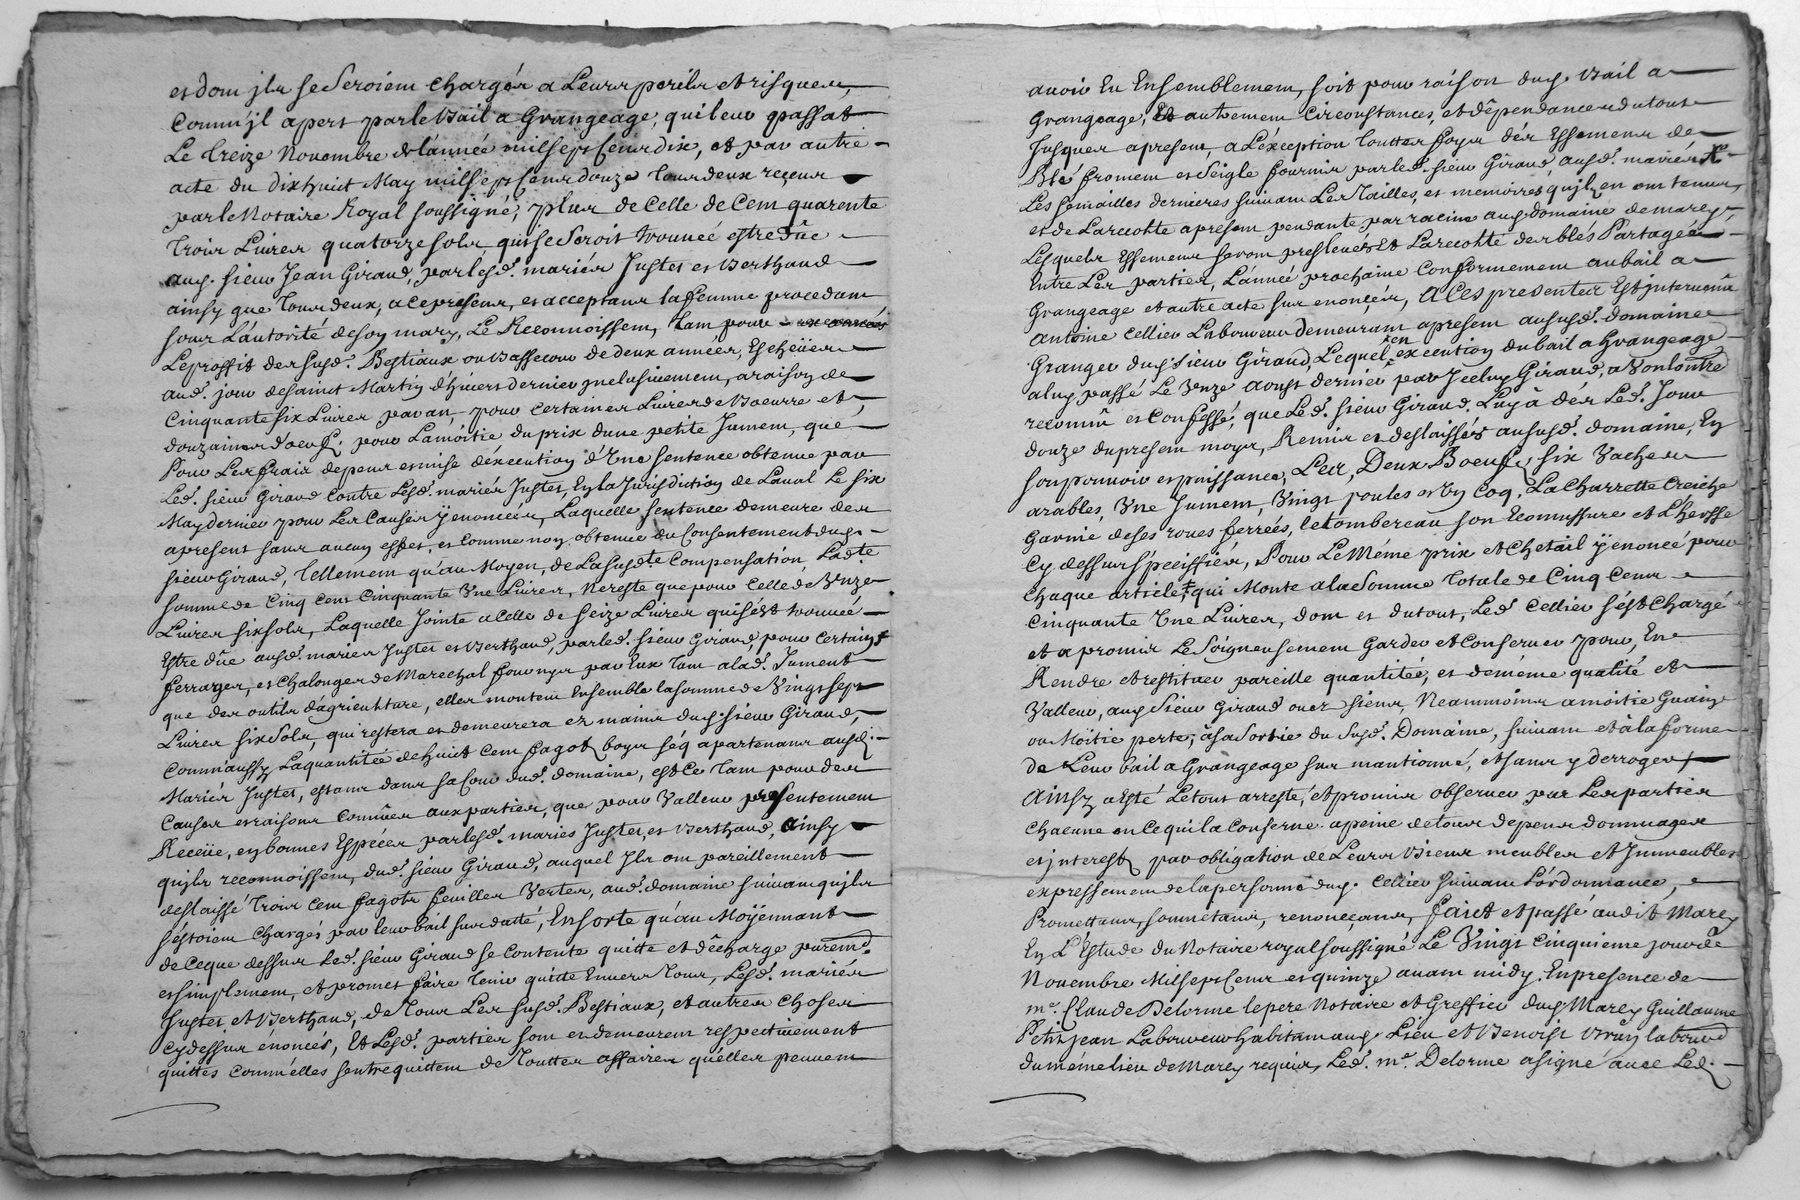 et dont jls se seroient chargés a Leurs perils et risques,
Comm'jl apert par le Bail a Grangeage, qu'il leur passat
Le treize Novembre de l'année mil sept Cens dix, et par autre
acte du dix huict May mil sept Cens douze tous deux reçeus
par le Notaire Royal soussigné, plus de Celle de Cent quarente
trois Livres quatorze sols qui se seroit trouvée estre dûe
aud. sieur Jean Giraud, par lesd. mariés Justet et Berthaud
ainsy que tous deux, a ce presens, et acceptans la femme procedant
sous L'autorité de son mary, Le Reconnoissent, tant pour
Le proffit des susd. Bestiaux ou Bassecour de deux années, Escheües
aud. jour de sainct Martin d'hivert dernier jnclusivement, a raison de
Cinquante six Livres par an, pour certaines Livres de Boeurre et,
douzaines d'oeufs, pour La moitié du prix d'une petite Jument, que
Pour Les fraix depens et mise d'éxecution d'Une sentence obtenue par
Led. sieur Giraud Contre Lesd. mariés Justet, En la Jurisdiction de Laval Le six
May dernier pour Les Causes ÿ enoncées, Laquelle sentence demeure des
apresent sans aucun effet, et Comme non obtenue du Consentement dud.
sieur Giraud, Tellement qu'au Moyen, de La susd.te Compensation, Lad.te
somme de Cinq Cens Cinquante Une Livres, Ne reste que pour Celle de Unze
Livres six sols, Laquelle Jointe a Celle de seize Livres qui s'est trouvée
Estre dûe ausd. mariés Justet et Berthaud, par led. sieur Giraud, pour Certains
ferrages, et Chalonges de Marechal fournys par Eux tant a lad. Jument
que des outils d'agriculture, elles montent Ensemble la somme de Vingt sept
Livres six sols, qui restera et demeurera ez mains dud. sieur Giraud,
Comm'aussy La quantitée de huict Cent fagots boys sêq apartenans ausd.
Mariés Justet, estans dans sa Cour dud. domaine, est Ce tant pour des
Causes et raisons Connües aux parties, que pour Valleur presentement
Receüe, en bonnes Espéces par lesd. maries Justet, et Berthaud, Ainsy
qu'jls reconnoissent, dud. sieur Giraud, auquel Jls ont pareillement
deslaissé trois Cent fagots feuilles Vertes, aud. domaine suivant qu'jls
s'estoient Charges par leur bail susdatté, En sorte qu'au Moÿennant
de Ceque dessus Led. sieur Giraud se Contente quitte et dêcharge purem.t
et simplement, et promet faire tenir quitte Envers tous, Lesd. mariés
Justet et Berthaud, de tous Les susd. Bestiaux, et autres Choses
Cy dessus énoncés, Et Lesd. parties sont et demeurent respectivement
quittes Comm'elles s'entrequittent de Touttes affaires qu'elles peuvent
avoir Eu Ensemblement, soit pour raison dud. Bail a
Grangeage, Et autrement Circonstances, et dêpendances du tout
Jusques apresent, a L'éxception touttes foys des Essemens de
Blé froment et seigle fournis par led. sieur Giraud, ausd. mariés
Les semailles dernieres suivant Les Tailles, et memoires qu'jlz en ont tenus,
et de La recolte apresent pendante par racine aud. domaine de marcy
Lesquels Essemens seront preslevés Et La recolte des blés Partagée
Entre Les parties, L'année prochaine Conformement au bail a
Grangeage et autre acte sus enonçés, A Ces presentes Est intervenû
Antoine Cellier Laboureur demeurant apresent au susd. domaine
Granger dud. sieur Giraud, Lequel, en execution du bail a Grangeage
a luy passé Le Unze Aoust dernier par Jceluy Giraud, a Volontre
reconnû et Confessé, que Led. sieur Giraud, Luy à dés Led. Jour
douze du present moys, Remis et deslaissés au susd. domaine, En
son pouvoir et puissance, Les, Deux Boeufs, six Vaches
arables, Une Jument, Vingt poules et Un Coq, La Charrette treiche
Garnie de ses roues ferrées, le tombereau son Ecoussure et L'hersse
Cy dessus spéciffiés, Pour Le Méme prix et Chetail ÿ énoncé pour
Chaque article, qui Monte a la somme totale de Cinq Cens
Cinquante Une Livres, dont et du tout, Led. Cellier s'est Chargé
et a promis Le Soigneusement Garder et Conserver pour, En
Rendre et restituer pareille quantité, et de méme qualité et
Valleur, aud. sieur Giraud ou ez siens, Neammoins a moitié Guain
ou Moitie perte, à sa sortie du susd. Domaine, suivant et à la forme
de Leur bail a Grangeage sus mantionné, et sans y derroger
Ainsy a esté Le tout arresté, et promis observer par Les parties
Chacune en Ce qui la Conserne a peine de tous depens dommages
et jnterest par obligation de Leurs Biens meubles et Jmmeubles
expressement de la personne dud. Cellier suivant L'ordonnance,
Promettans, soumetans, renonçans, fait et passé audit Marcy
En L'Estude du Notaire royal soussigné Le Vingt cinquieme jour de
Novembre Mil sept Cens et quinze avant midy. En presence de
m.e Claude Delorme le pere Notaire et Greffier dud. Marcy Guillaume
Petitjean Laboureur habitant aud. Lieu et Benoist Vray Laboureur
du méme lieu de Marcy requis, Led. m.e Delorme a signé avec Led.